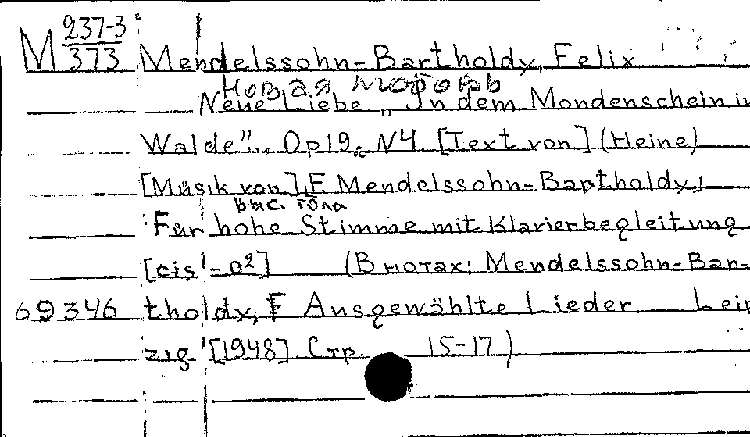 М 237-3
373
Mendelssohn-Bartholdy, Felix
Новая любовь
Neue Liebe „In dem Mondenschein im
Walde". Op19. N4 [Text von] (Heine)
[Musik von] F Mendelssohn-Bartholdy.
выс. гол
Für hohe Stimme mit Klavierbegleitung
[cis¹-a²] (В нотах: Mendelssohn-Bar-
69346 tholdy, F Ausgewählte Lieder Leip
zig [1948] Стр 15-17)